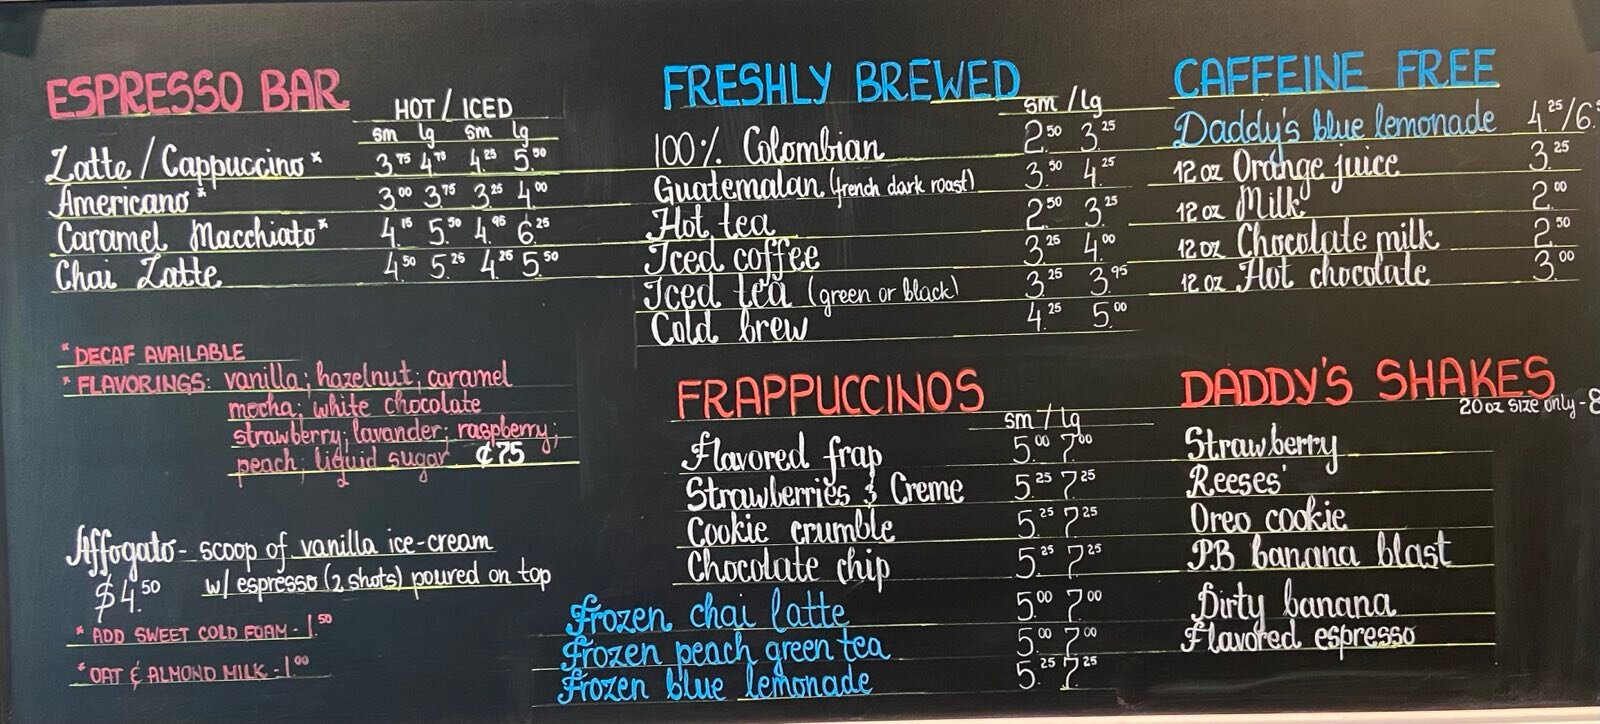 ESPRESSO BAR
HOT / ICED
sm lg sm lg
Latte / Cappuccino* 3.75 4.75 4.25 5.50
Americano* 3.00 3.75 3.25 4.00
Caramel Macchiato* 4.75 5.50 4.95 6.25
Chai Latte 4.50 5.25 4.25 5.50
* DECAF AVAILABLE
* FLAVORINGS: vanilla; hazelnut; caramel
mocha; white chocolate
strawberry; lavander; raspberry;
peach; liquid sugar ¢75
Affogato - scoop of vanilla ice-cream
$4.50 w/ espresso (2 shots) poured on top
* ADD SWEET COLD FOAM - 1.50
* OAT & ALMOND MILK - 1.00
FRESHLY BREWED
sm / lg
100% Colombian 2.50 3.25
Guatemalan (french dark roast) 3.50 4.25
Hot tea 2.50 3.25
Iced coffee 3.25 4.00
Iced tea (green or black) 3.25 3.95
Cold brew 4.25 5.00
FRAPPUCCINOS
sm / lg
Flavored frap 5.00 7.00
Strawberries & Creme 5.25 7.25
Cookie crumble 5.25 7.25
Chocolate chip 5.25 7.25
Frozen chai latte 5.00 7.00
Frozen peach green tea 5.00 7.00
Frozen blue lemonade 5.25 7.25
CAFFEINE FREE
Daddy's blue lemonade 4.25/6.
12 oz Orange juice 3.25
12 oz Milk 2.00
12 oz Chocolate milk 2.50
12 oz Hot chocolate 3.00
DADDY'S SHAKES
20 oz size only - 8
Strawberry
Reeses'
Oreo cookie
PB banana blast
Dirty banana
Flavored espresso